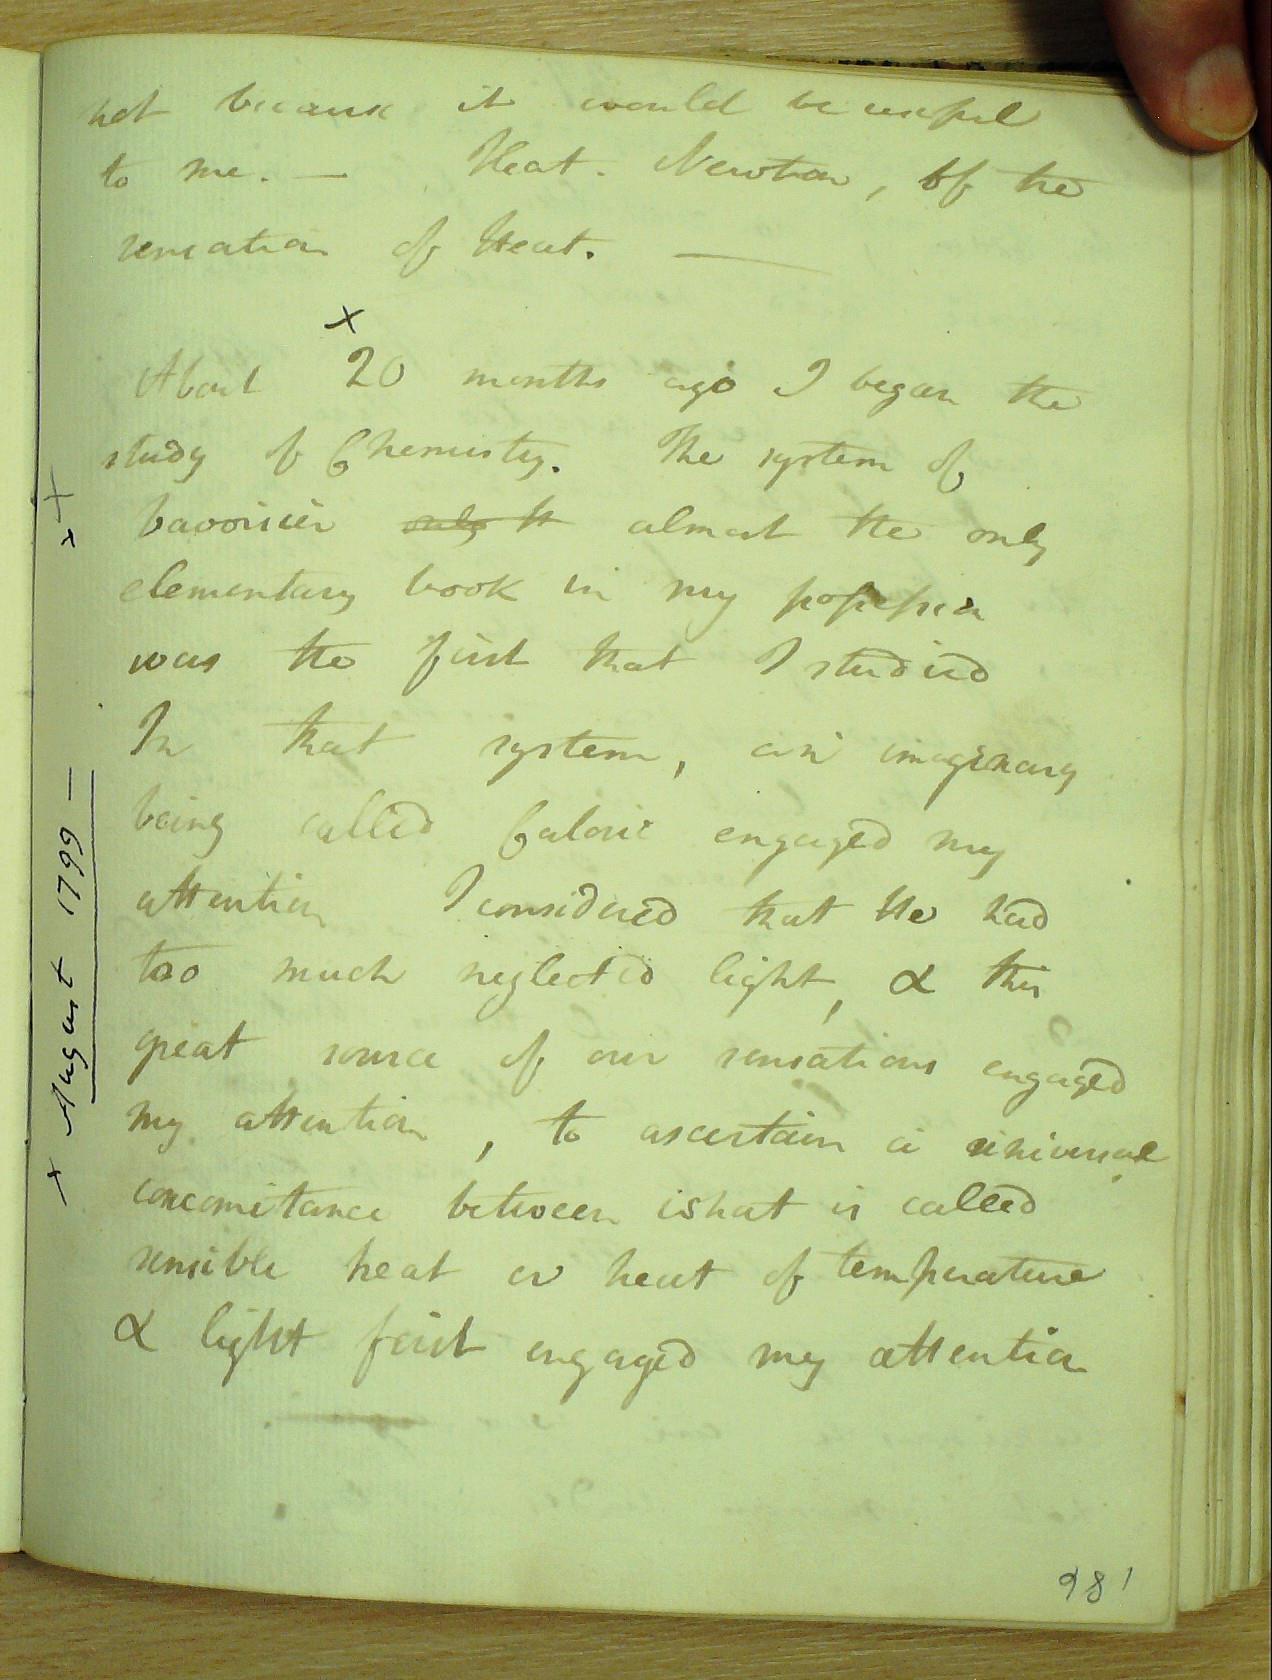 not because it would be useful
to me. — Heat. Newton, Of the
sensation of Heat. —
x
About 20 months ago I began the
study of Chemistry. The system of
Lavoisier only tt almost the only
elementary book in my possession
was the first that I studied
In that system, an imaginary
being called Caloric engaged my
attention I considered that He had
too much neglected light, & this
great source of our sensations engaged
my attention, to ascertain a universal
concomitance between what is called
sensible heat or heat of temperature
& light first engaged my attention
x August 1799 —
x X
98'